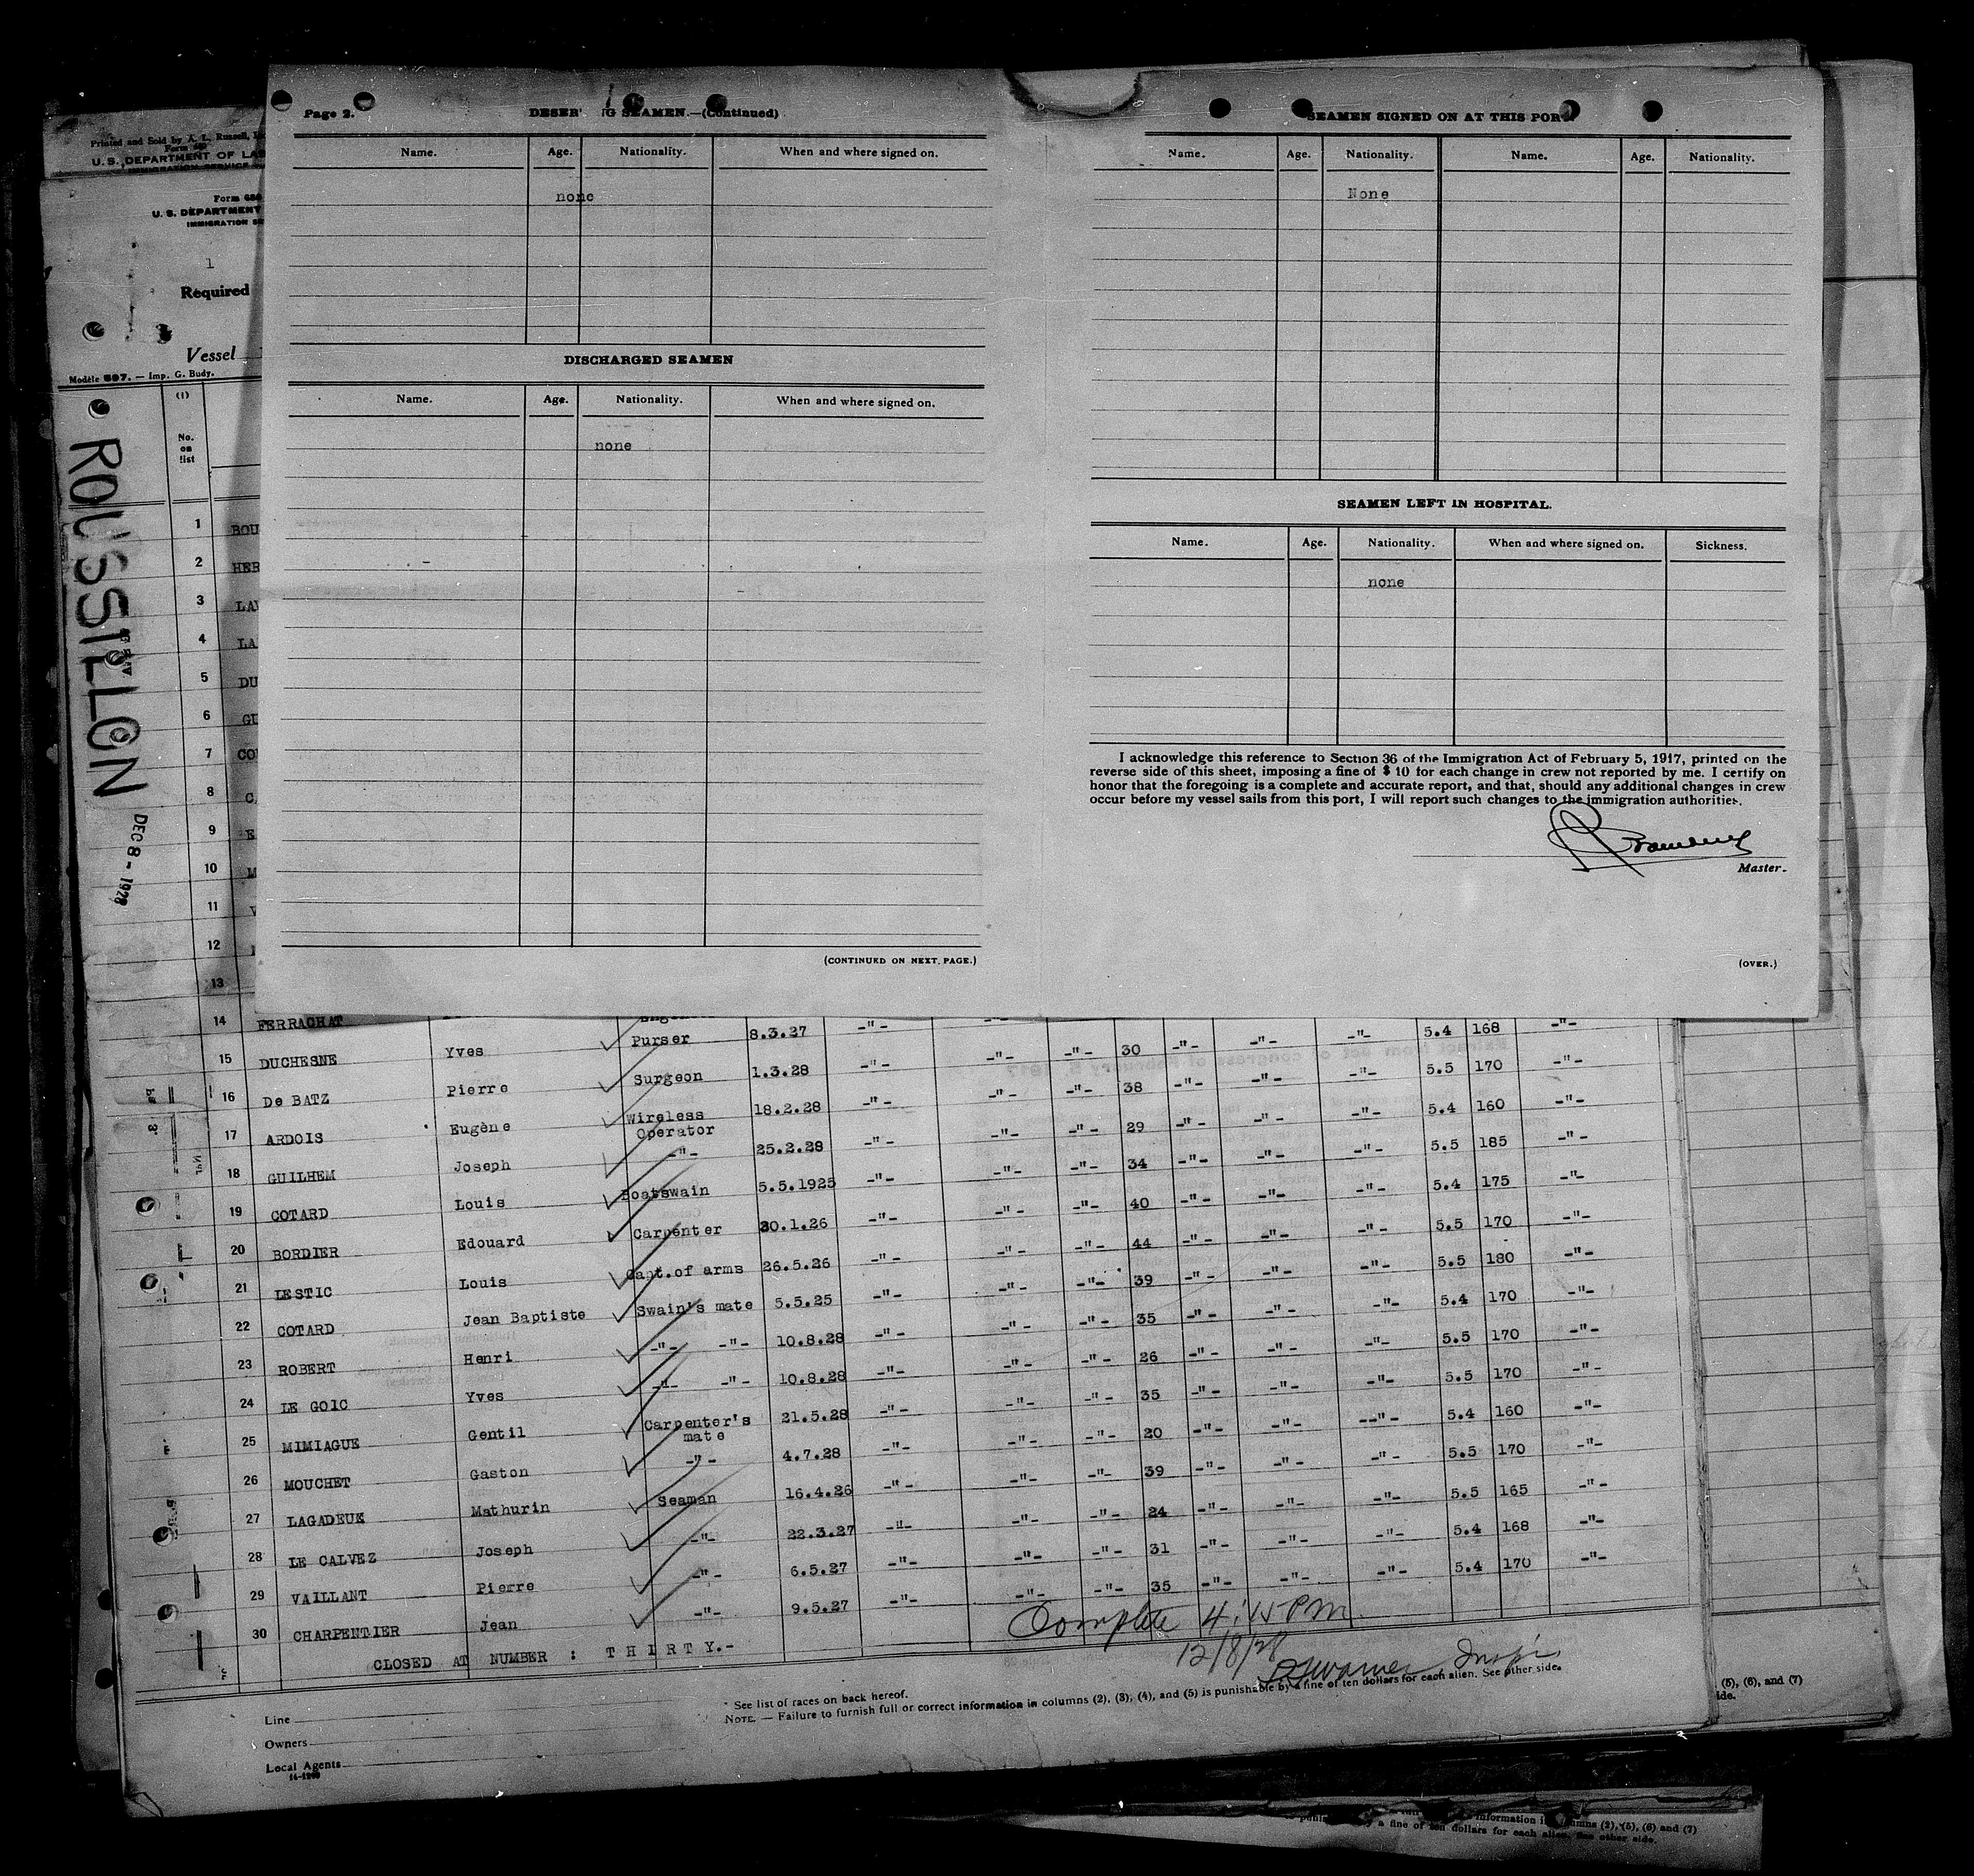 Page 2.
DESER' G SEAMEN.—(Continued)
Name. Age. Nationality. When and where signed on.
none
DISCHARGED SEAMEN
Name. Age. Nationality. When and where signed on.
none
(CONTINUED ON NEXT PAGE.)
SEAMEN SIGNED ON AT THIS POR
Name. Age. Nationality. Name. Age. Nationality.
None
SEAMEN LEFT IN HOSPITAL.
Name. Age. Nationality. When and where signed on. Sickness.
none
I acknowledge this reference to Section 36 of the Immigration Act of February 5, 1917, printed on the
reverse side of this sheet, imposing a fine of $ 10 for each change in crew not reported by me. I certify on
honor that the foregoing is a complete and accurate report, and that, should any additional changes in crew
occur before my vessel sails from this port, I will report such changes to the immigration authorities.
Master.
(OVER.)
Printed and Sold by A. L. Russell,
Form 689
U.S. DEPARTMENT OF LA
IMMIGRATION SERVICE
Form 680
U. S. DEPARTMENT
IMMIGRATION SE
1
Required
3
Vessel
Modèle 597. — Imp. G. Budy.
(1)
No.
on
list
ROUSSILLON
DEC 8 - 1928
1 BOU
2 HER
3 LAV
4 LA
5 DU
6 GU
7 COU
8 C
9 E
10 M
11 V
12
13
14 FERRACHAT
15 DUCHESNE Yves Purser 8.3.27 -"- -"- -"- 30 -"- -"- -"- 5.4 168 -"-
16 De BATZ Pierre Surgeon 1.3.28 -"- -"- -"- 38 -"- -"- -"- 5.5 170 -"-
17 ARDOIS Eugène Wireless Operator 18.2.28 -"- -"- -"- 29 -"- -"- -"- 5.4 160 -"-
18 GUILHEM Joseph -"- 25.2.28 -"- -"- -"- 34 -"- -"- -"- 5.5 185 -"-
19 COTARD Louis Boatswain 5.5.1925 -"- -"- -"- 40 -"- -"- -"- 5.4 175 -"-
20 BORDIER Edouard Carpenter 30.1.26 -"- -"- -"- 44 -"- -"- -"- 5.5 170 -"-
21 LESTIC Louis Capt.of arms 26.5.26 -"- -"- -"- 39 -"- -"- -"- 5.5 180 -"-
22 COTARD Jean Baptiste Swain's mate 5.5.25 -"- -"- -"- 35 -"- -"- -"- 5.4 170 -"-
23 ROBERT Henri -"- -"- 10.8.28 -"- -"- -"- 26 -"- -"- -"- 5.5 170 -"-
24 LE GOIC Yves -"- -"- 10.8.28 -"- -"- -"- 35 -"- -"- -"- 5.5 170 -"-
25 MIMIAGUE Gentil Carpenter's mate 21.5.28 -"- -"- -"- 20 -"- -"- -"- 5.4 160 -"-
26 MOUCHET Gaston -"- 4.7.28 -"- -"- -"- 39 -"- -"- -"- 5.5 170 -"-
27 LAGADEUE Mathurin Seaman 16.4.26 -"- -"- -"- 24 -"- -"- -"- 5.5 165 -"-
28 LE CALVEZ Joseph -"- 22.3.27 -"- -"- -"- 31 -"- -"- -"- 5.4 168 -"-
29 VAILLANT Pierre -"- 6.5.27 -"- -"- -"- 35 -"- -"- -"- 5.4 170 -"-
30 CHARPENTIER Jean -"- 9.5.27 -"-
CLOSED AT NUMBER : T H I R T Y.-
Complete 4:15 PM
12/8/28
Warner Insp'r
Line
Owners
Local Agents
14-1240
* See list of races on back hereof.
NOTE. — Failure to furnish full or correct information in columns (2), (3), (4), and (5) is punishable by a fine of ten dollars for each alien. See other side.
(5), (6), and (7)
ide.
information in columns (2), (5), (6) and (7)
a fine of ten dollars for each alien. See other side.